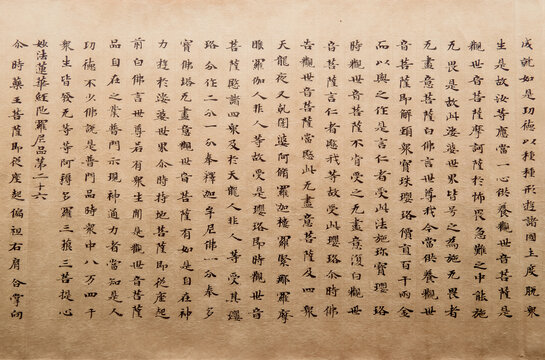 成就如是功德以種種形遊諸國土度脫眾
生是故汝等應當一心供養觀世音菩薩是
觀世音菩薩摩訶薩於怖畏急難之中能施
无畏是故此娑婆世界皆号之為施无畏者
无盡意菩薩白佛言世尊我今當供養觀世
音菩薩即解頸眾寶珠瓔珞價直百千兩金
而以與之作是言仁者受此法施珎寶瓔珞
時觀世音菩薩不肯受之无盡意復白觀世
音菩薩言仁者愍我等故受此瓔珞尒時佛
告觀世音菩薩當愍此无盡意菩薩及四眾
天龍夜叉乹闥婆阿脩羅迦樓羅緊那羅摩
睺羅伽人非人等故受是瓔珞即時觀世音
菩薩愍諸四眾及於天龍人非人等受其瓔
珞分作二分一分奉釋迦牟尼佛一分奉多
寶佛塔无盡意觀世音菩薩有如是自在神
力遊於娑婆世界尒時持地菩薩即從座起
前白佛言世尊若有眾生聞是觀世音菩薩
品自在之業普門示現神通力者當知是人
功德不少佛說是普門品時眾中八万四千
眾生皆發无等等阿耨多羅三藐三菩提心
妙法蓮華經陁羅尼品第二十六
尒時藥王菩薩即從座起偏袒右肩合掌向